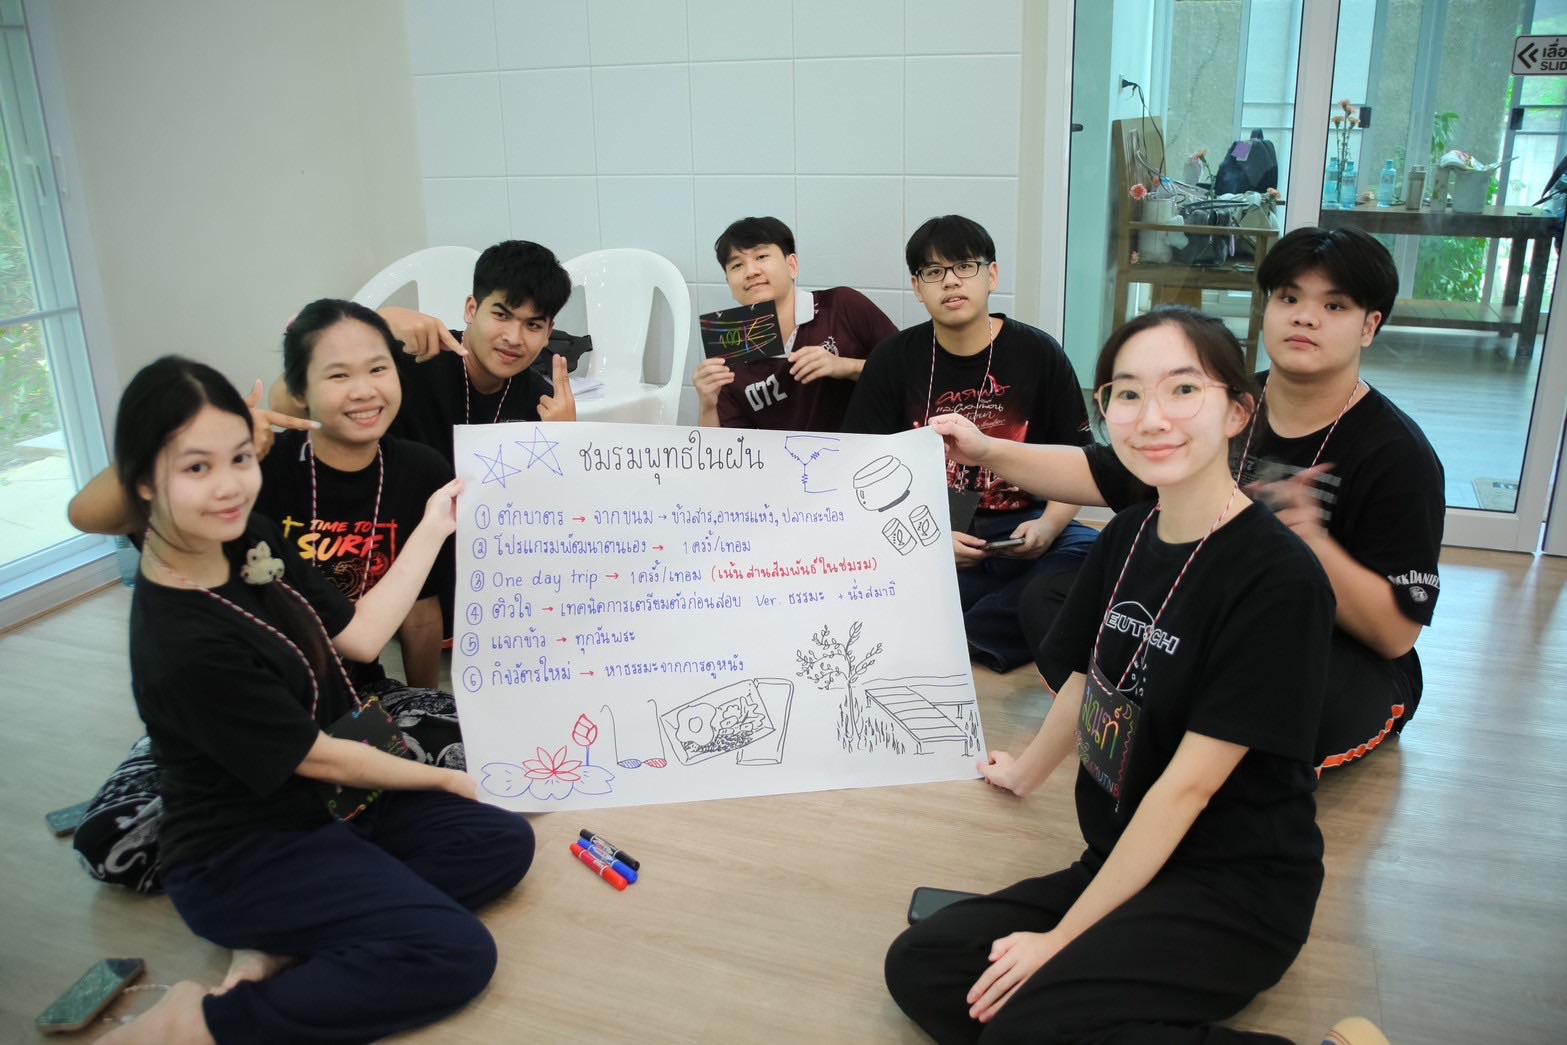 ชมรมพุทธในฝัน
① ตักบาตร → จากขนม → ข้าวสาร, อาหารแห้ง, ปลากระป๋อง
② โปรแกรมพัฒนาตนเอง → 1 ครั้ง/เทอม
③ One day trip → 1 ครั้ง/เทอม (เน้นสานสัมพันธ์ในชมรม)
④ ติวใจ → เทคนิคการเตรียมตัวก่อนสอบ Ver. ธรรมะ + นั่งสมาธิ
⑤ แจกข้าว → ทุกวันพระ
⑥ กิจวัตรใหม่ → หาธรรมะจากการดูหนัง
TIME TO
SURF
072
SLID